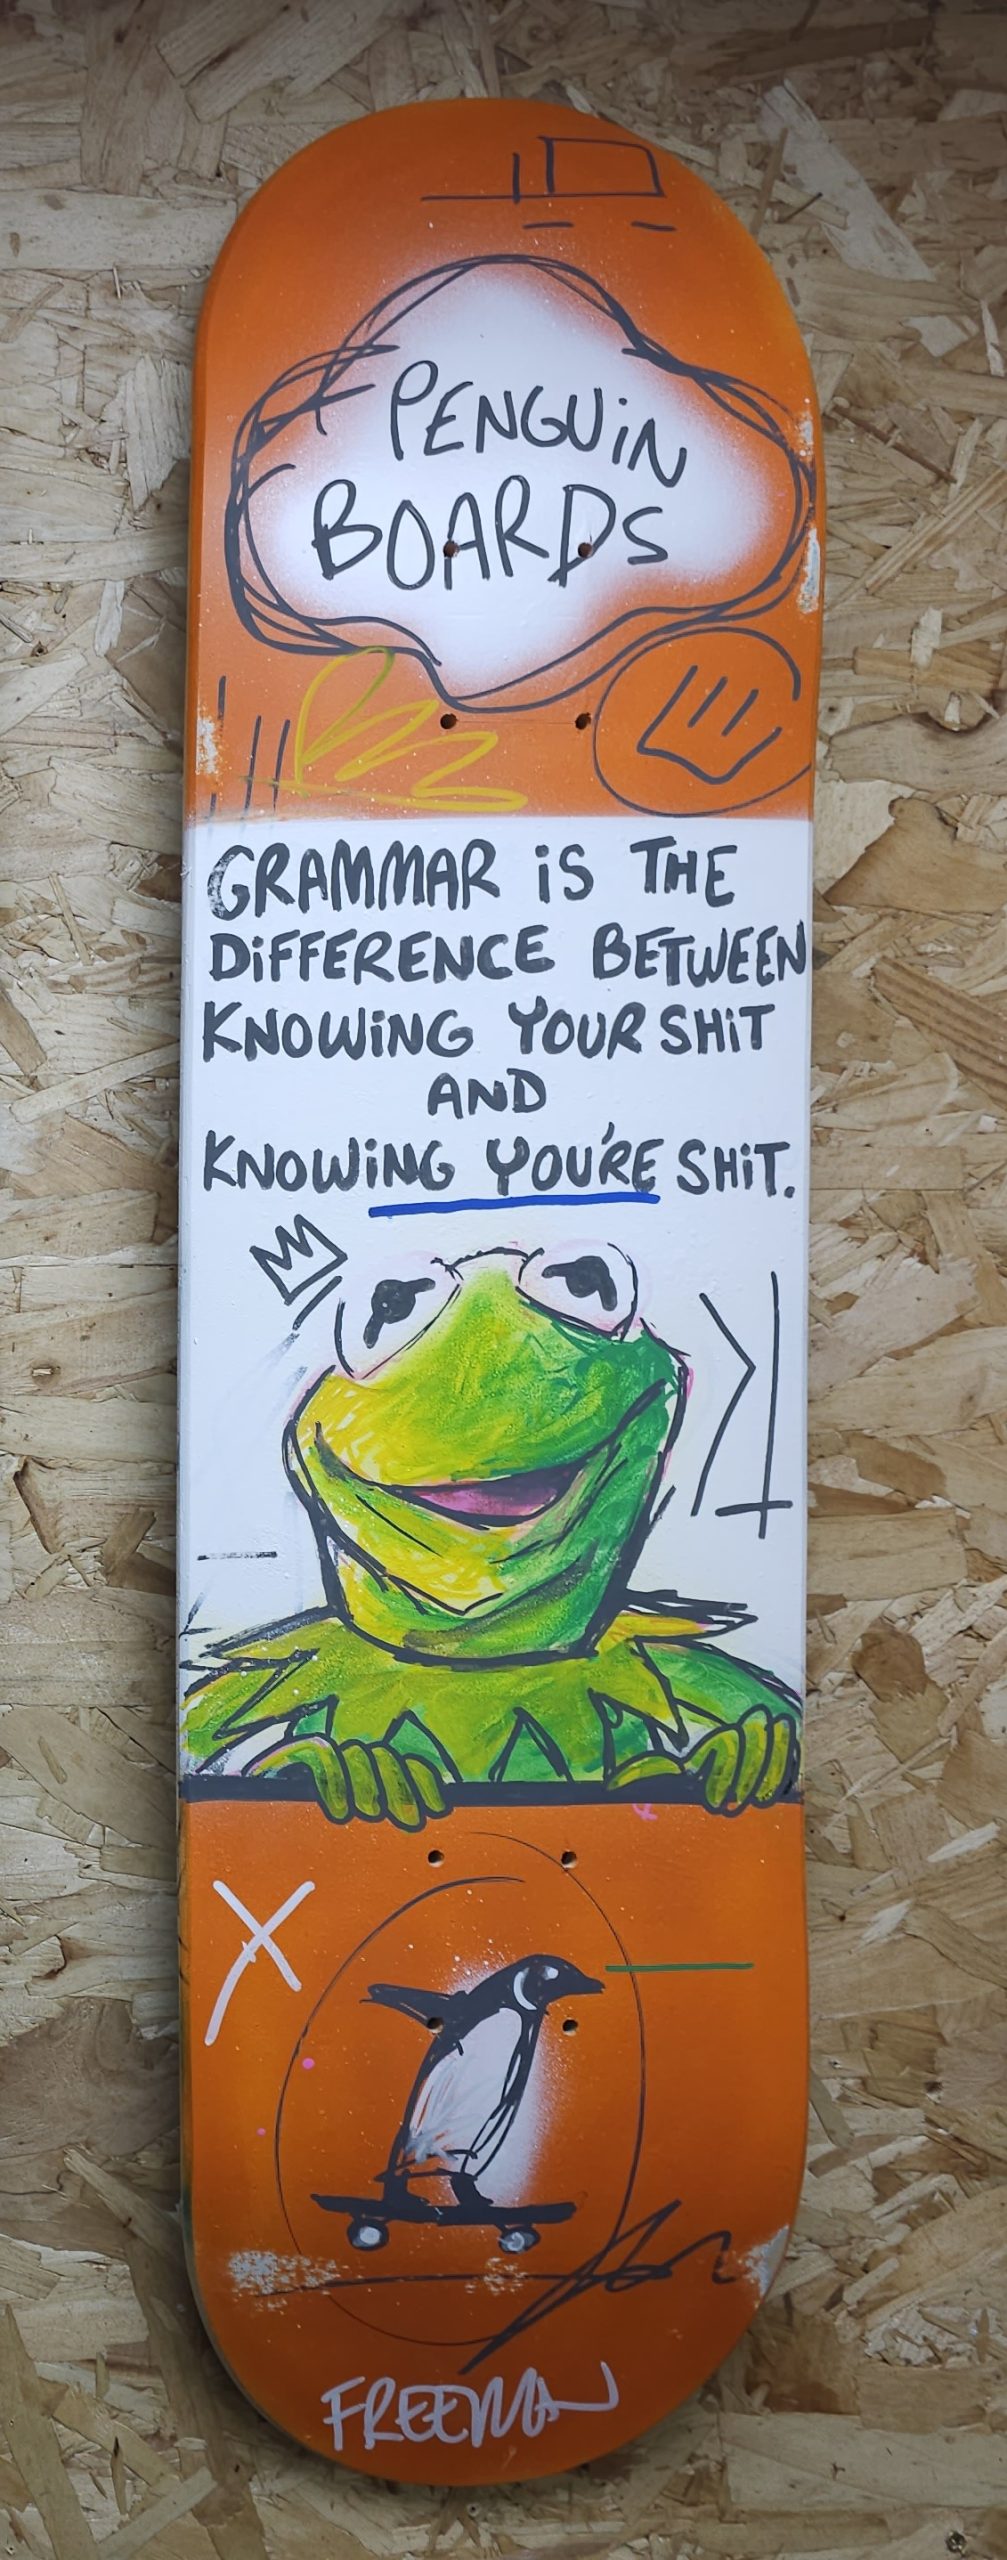 PENGUIN
BOARDS
GRAMMAR IS THE
DIFFERENCE BETWEEN
KNOWING YOUR SHIT
AND
KNOWING YOU'RE SHIT.
FREEMAN